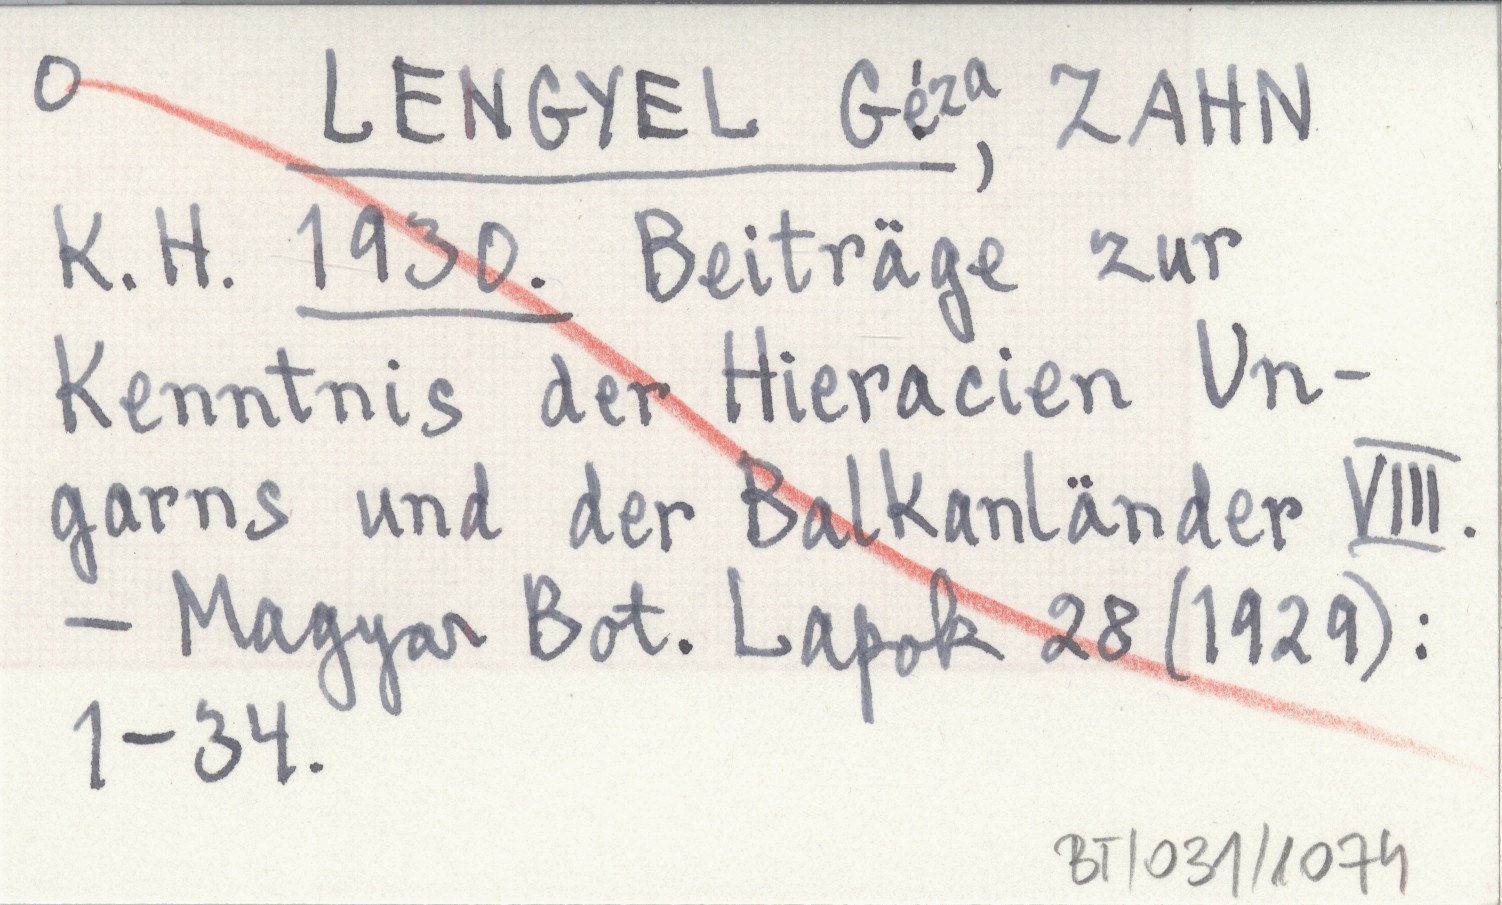 O LENGYEL Géza, ZAHN
K. H. 1930. Beiträge zur
Kenntnis der Hieracien Un-
garns und der Balkanländer VIII.
- Magyar Bot. Lapok 28 (1929):
1-34.
BT/031/1074